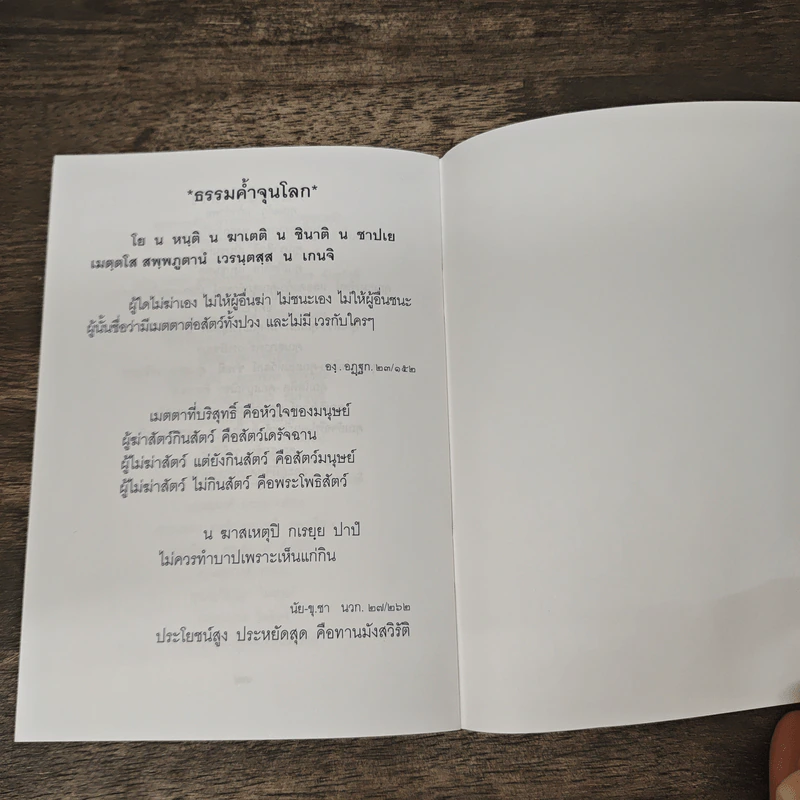 *ธรรมค้ำจุนโลก*
โย น หนฺติ น ฆาเตติ น ชินาติ น ชาปเย
เมตฺตโส สพฺพภูตานํ เวรนฺตสฺส น เกนจิ
ผู้ใดไม่ฆ่าเอง ไม่ให้ผู้อื่นฆ่า ไม่ชนะเอง ไม่ให้ผู้อื่นชนะ
ผู้นั้นชื่อว่ามีเมตตาต่อสัตว์ทั้งปวง และไม่มีเวรกับใครๆ
องฺ. อฏฺฐก. ๒๓/๑๕๒
เมตตาที่บริสุทธิ์ คือหัวใจของมนุษย์
ผู้ฆ่าสัตว์กินสัตว์ คือสัตว์เดรัจฉาน
ผู้ไม่ฆ่าสัตว์ แต่ยังกินสัตว์ คือสัตว์มนุษย์
ผู้ไม่ฆ่าสัตว์ ไม่กินสัตว์ คือพระโพธิสัตว์
น ฆาสเหตุปิ กเรยฺย ปาปํ
ไม่ควรทำบาปเพราะเห็นแก่กิน
นัย-ขุ.ชา นวก. ๒๗/๒๖๒
ประโยชน์สูง ประหยัดสุด คือทานมังสวิรัติ